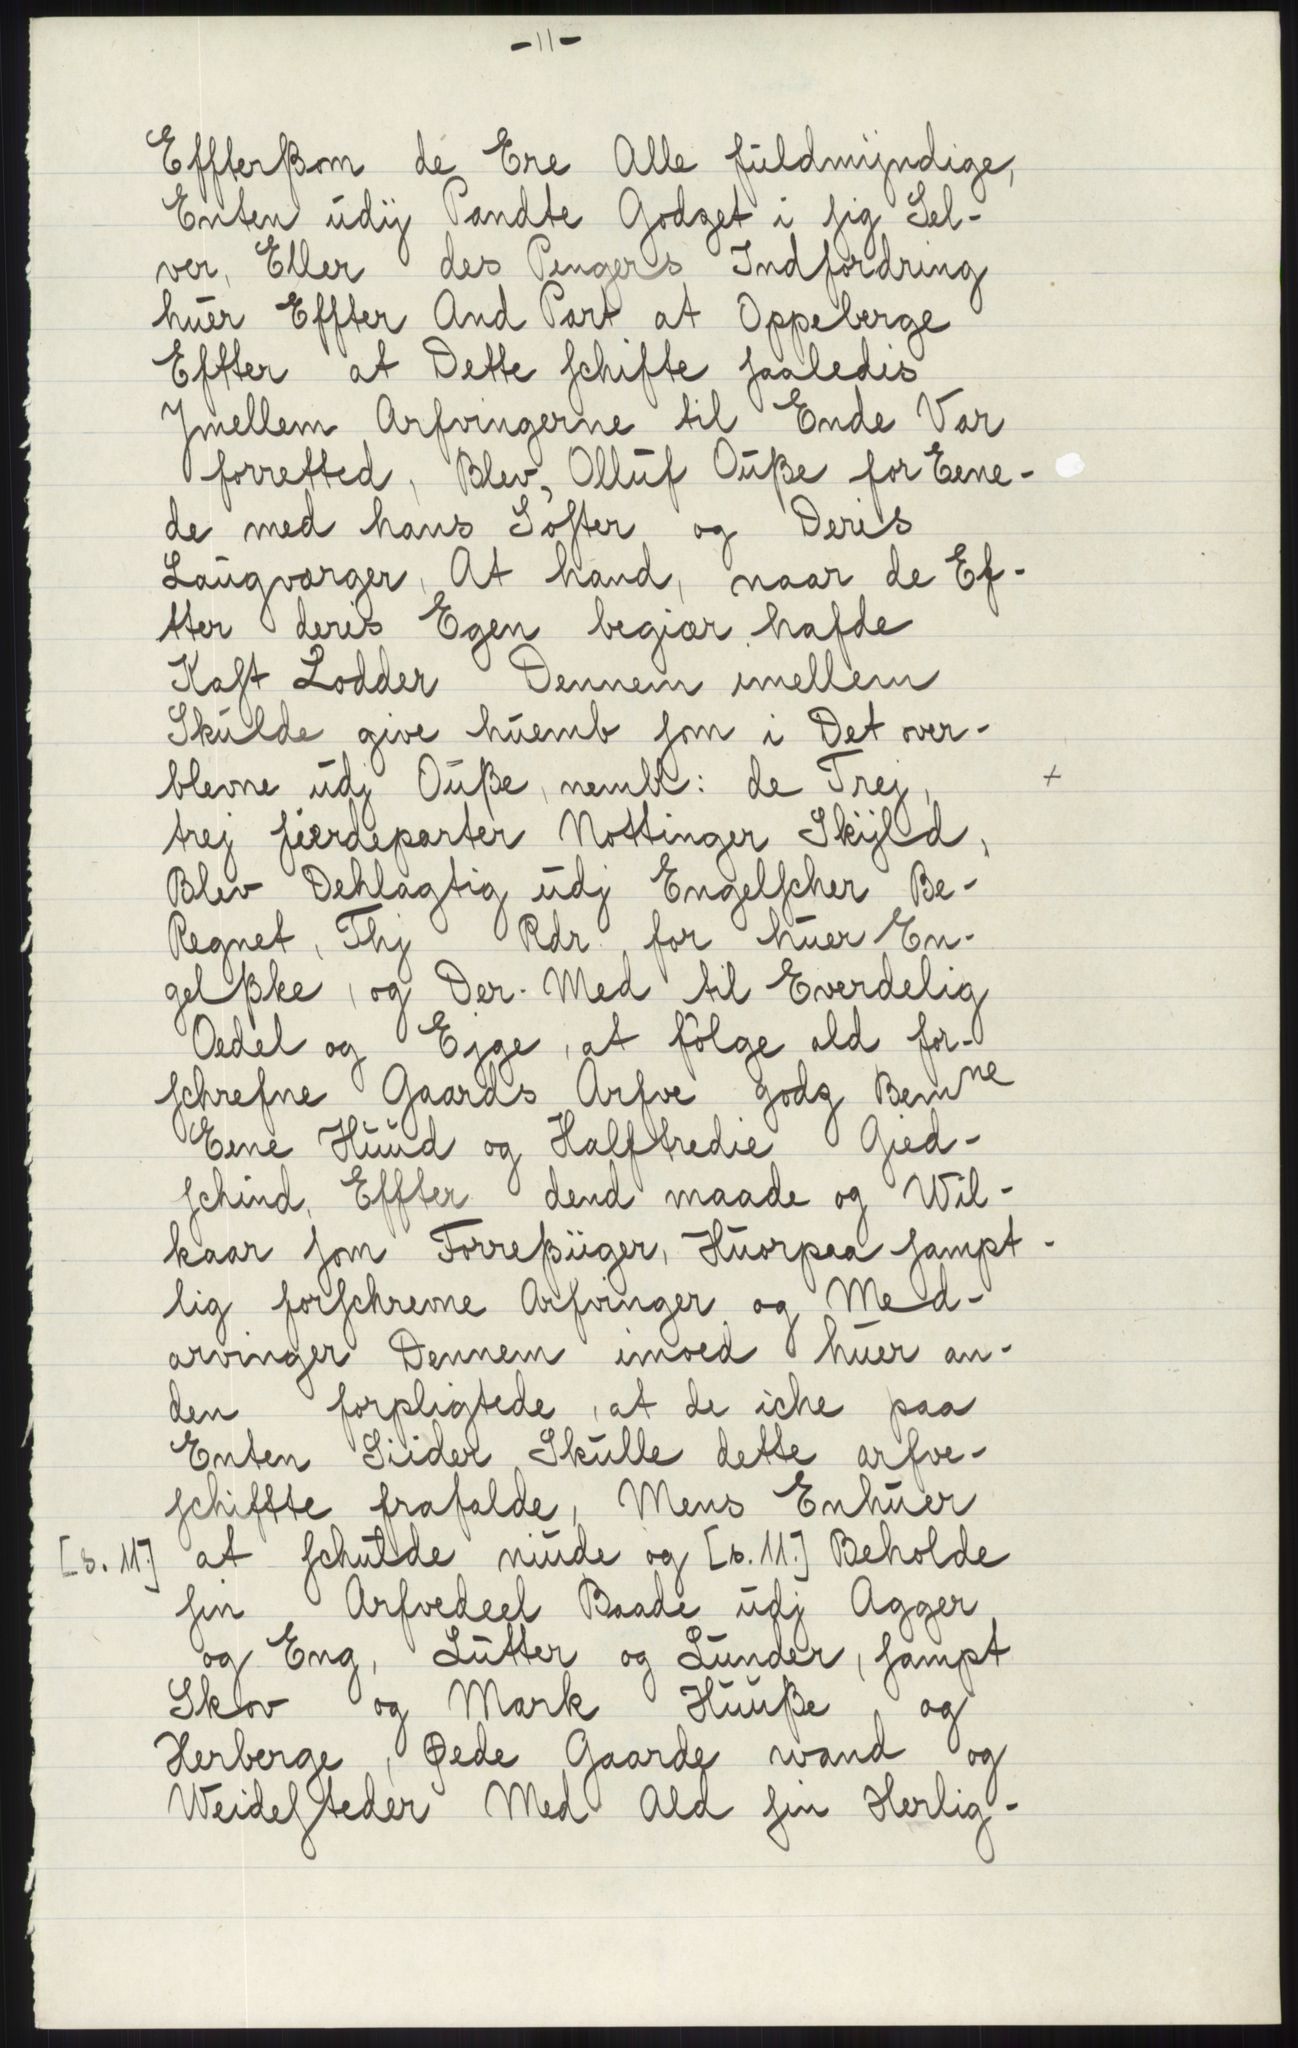 -11-
Effterßom de Ere Alle fuldmyndige,
Enten udij Pandte Godzet i sig Sel-
ver, Eller des Pengers Indfordring
huer Effter And Part at Oppeberge
Effter at Dette schifte saaledis
Jmellem Arfvingerne til Ende Var
forretted, Blev, Olluf Ouße for Eene-
de med hans Søster og Deris
Laugværger, At hand, naar de Ef-
tter deris Egen begiær hafde
Kast Lodder Dennem imellem
Skulde give huemb som i Det over-
blevne udj Ouße, nembl: de Trej,
trej fierdeparter Nottinger Skÿld,
Blev Dehlagtig udj Engelscher Be-
Regnet, Thj Rdr for huer En-
gelßke, og Der-Med til Everdelig
Oedel og Ejge, at følge ald for-
schrefne Gaards Arfve godz Bemne
Eene Huud og Halftredie Gied-
schind, Effter dend maade og Wil-
kaar som Forreßiiger, Huorpaa sampt-
lig forschrevne Arfvinger og Med-
arvinger Dennem imoed huer an-
den forpligtede, at de iche paa
Enten Siider Skulle dette arfve-
schiftte frafalde, Mens Enhuer
[s. 11.] at schulde niude og [s. 11.] Beholde
sin Arfvedeel Baade udj Agger
og Eng, Lutter og Lunder, sampt
Skov og Mark Huuße og
Herberge, Øede Gaarde wand og
Weidesteder Med Ald sin Herlig-
+